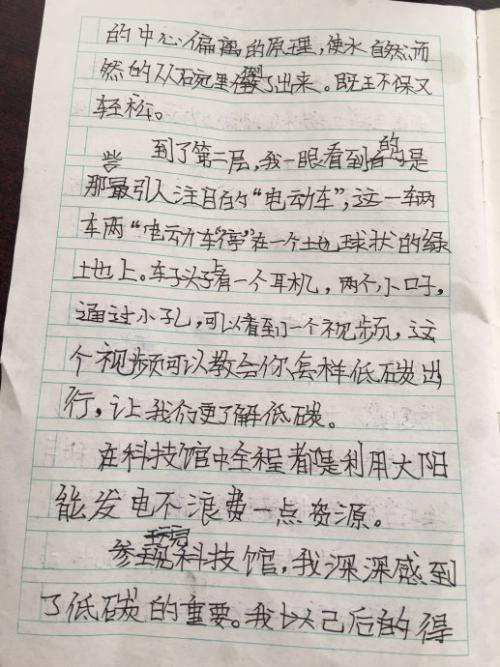 的中心偏离的原理，使水自然而
然的从石碗里倒了出来。既王不保又
轻松。
到了第二层，我一眼看到的是
那些最引人注目的“电动车”，这一车两
车两“电动车”停在一个土也球状的绿
土也上。车子头子有一个耳机，两个小口子，
通过小孔，可以看到一个视频，这
个视频可以教会你怎样低碳出
行，让我们更了解低碳。
在科技馆中全程都是利用大阳
能发电不浪费一点资源。
参观完科技馆，我深深感到
了低碳的重要。我以己后的得